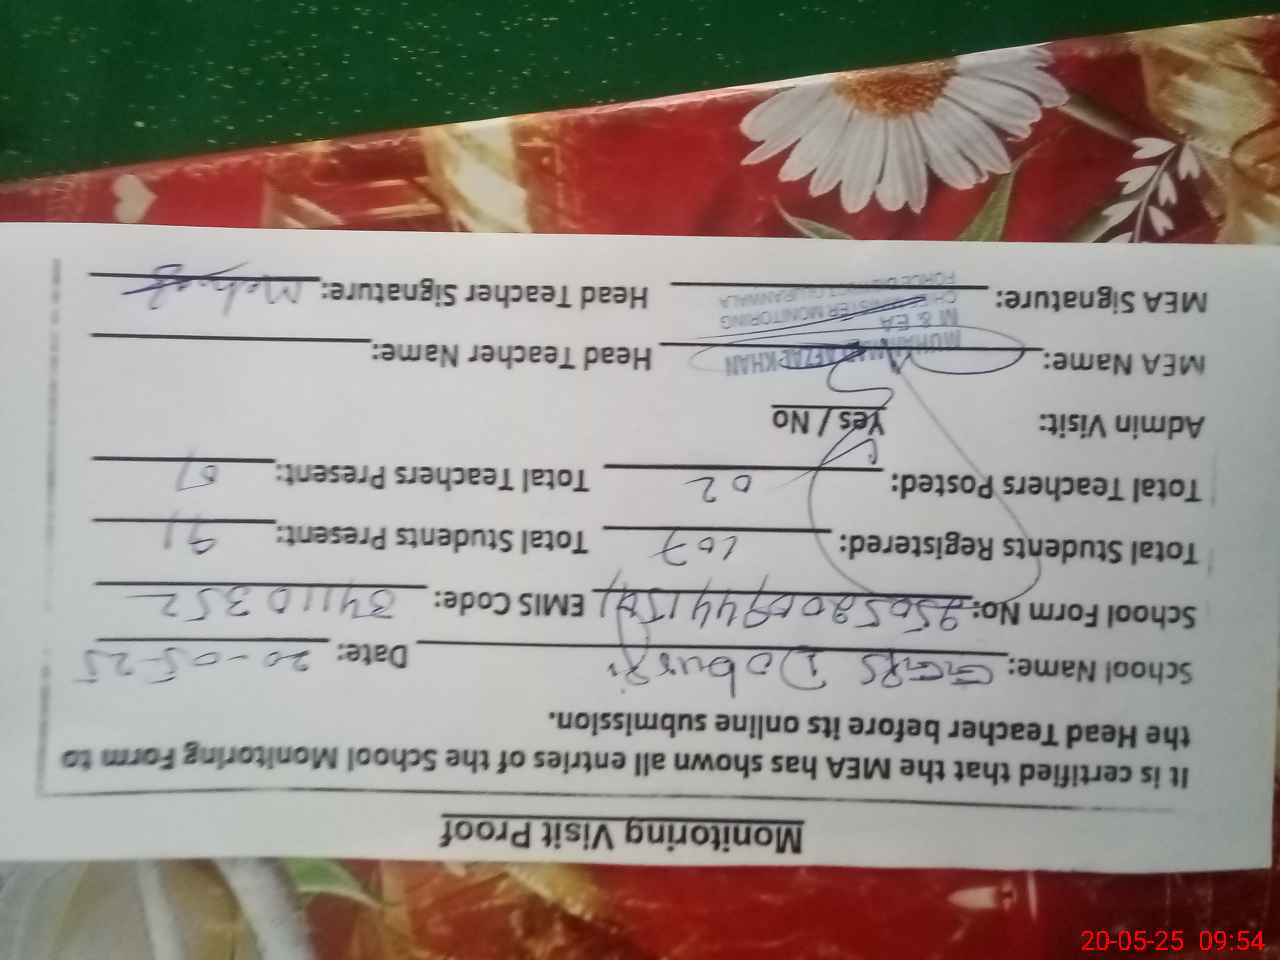 Monitoring Visit Proof
It is certified that the MEA has shown all entries of the School Monitoring Form to
the Head Teacher before its online submission.
School Name: GGPS Dobursi Date: 20-05-25
School Form No: EMIS Code: 34110352
Total Students Registered: 107 Total Students Present: 91
Total Teachers Posted: 02 Total Teachers Present: 01
Admin Visit: Yes / No
MEA Name: MUHAMMAD AFZAP KHAN Head Teacher Name:
M & EA
MEA Signature: CHIEF MINISTER MONITORING Head Teacher Signature:
FORCE DISTRICT GUJRANWALA
20-05-25 09:54